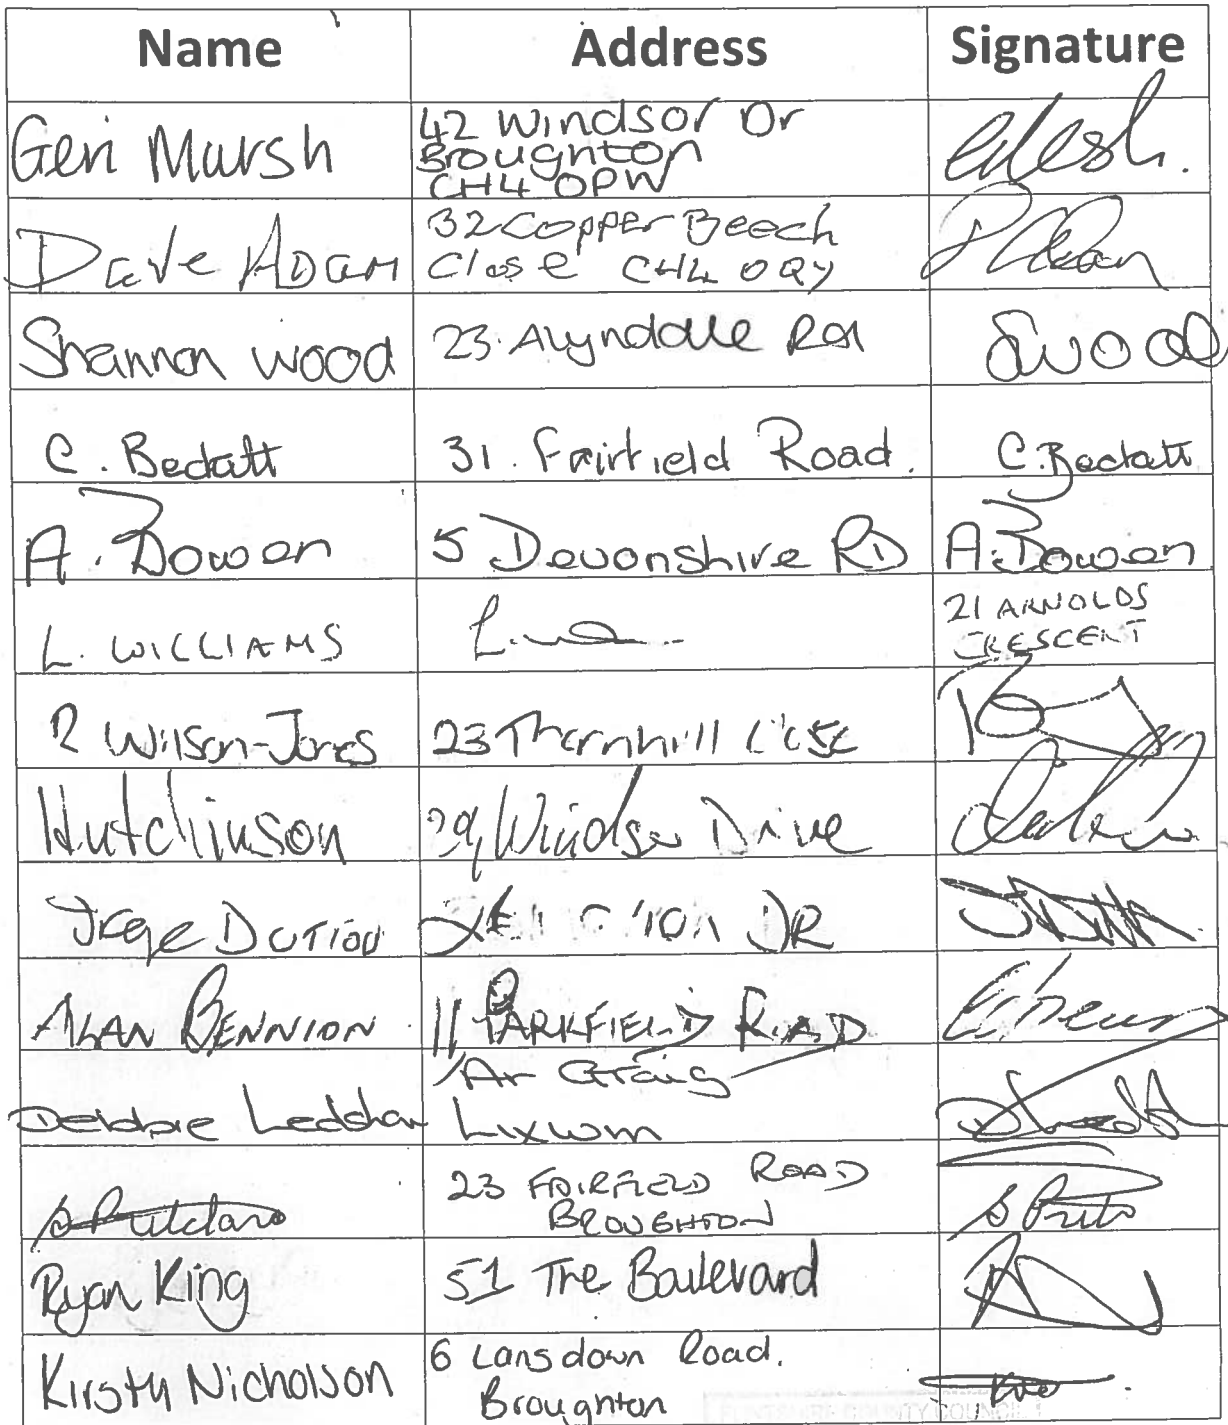 Name Address Signature
Geri Marsh 42 Windsor Dr
Broughton
CH4 0PW
Dave Adam 32 Copper Beech
Close CH4 0QY
Shannon Wood 23. Alyndale Rd Swood
C. Beckatt 31. Fairfield Road. C. Beckatt
A. Bowen 5 Devonshire RD A. Bowen
L. WILLIAMS 21 ARNOLDS
CRESCENT
R Wilson-Jones 23 Thornhill Close
Hutchinson 29, Windsor Drive
DR
ALAN BENNION 11 PARKFIELD ROAD
Ar Graig
Debbie Lixwm
23 FAIRFIELD ROAD
BROUGHTON
Ryan King 51 The Boulevard
Kirsty Nicholson 6 Lansdown Road.
Broughton
FLINTSHIRE COUNTY COUNCIL